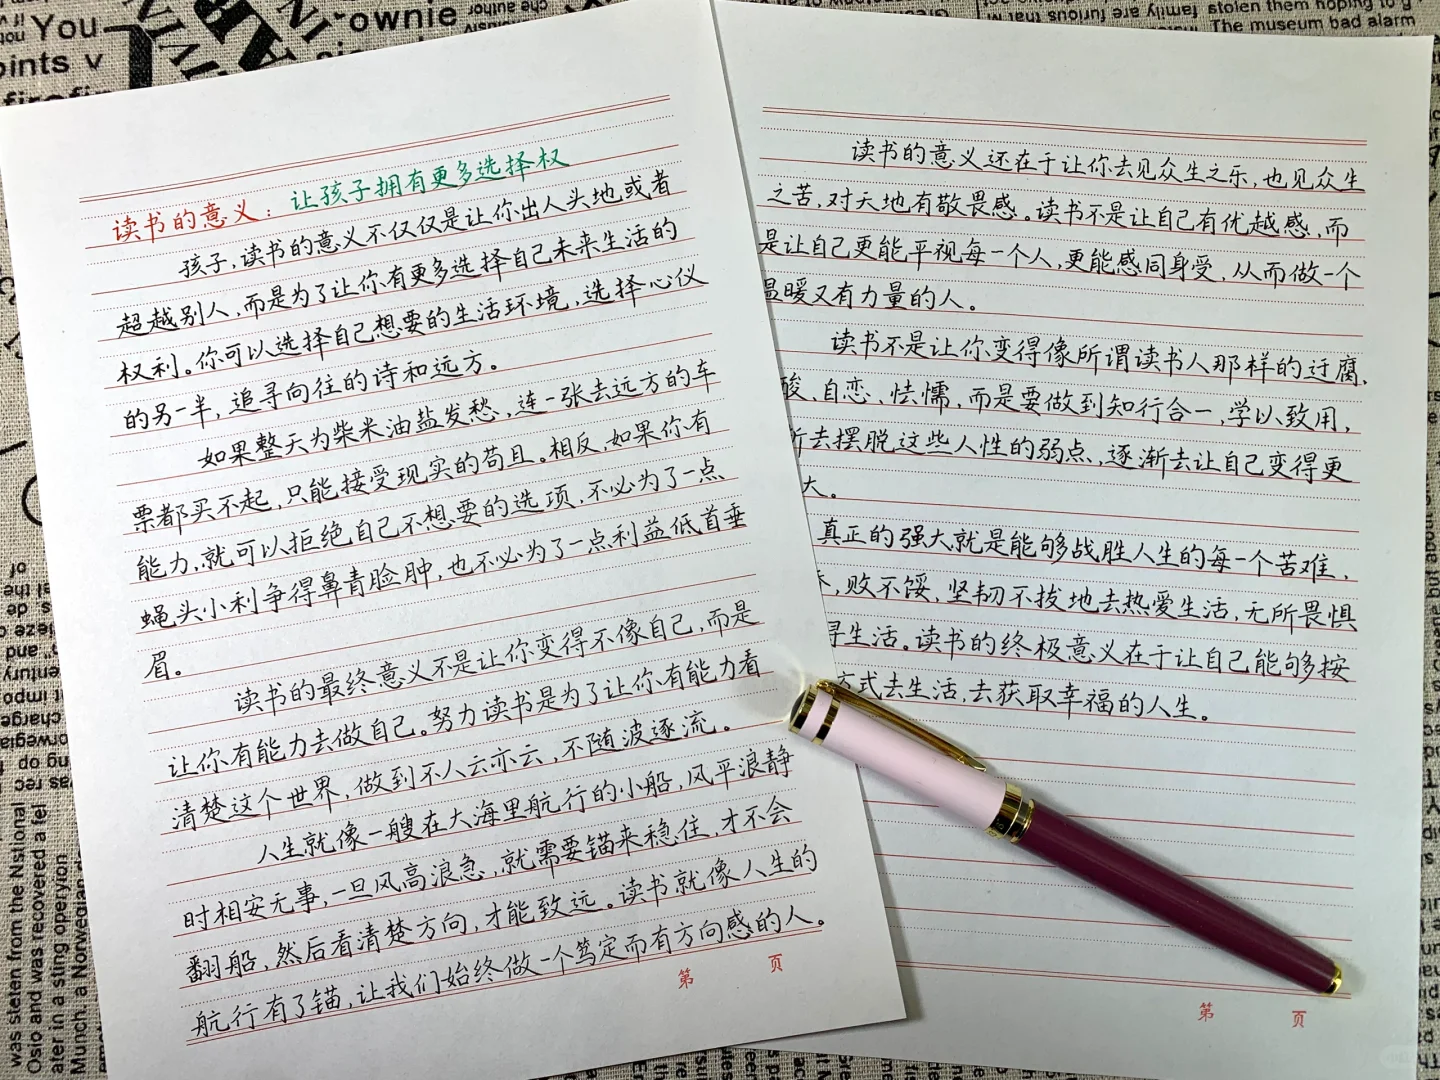 读书的意义：让孩子拥有更多选择权
孩子，读书的意义不仅仅是让你出人头地或者
超越别人，而是为了让你有更多选择自己未来生活的
权利。你可以选择自己想要的生活环境，选择心仪
的另一半，追寻向往的诗和远方。
如果整天为柴米油盐发愁，连一张去远方的车
票都买不起，只能接受现实的苟且。相反，如果你有
能力，就可以拒绝自己不想要的选项，不必为了一点
蝇头小利争得鼻青脸肿，也不必为了一点利益低首垂
眉。
读书的最终意义不是让你变得不像自己，而是
让你有能力去做自己。努力读书是为了让你有能力看
清楚这个世界，做到不人云亦云，不随波逐流。
人生就像一艘在大海里航行的小船，风平浪静
时相安无事，一旦风高浪急，就需要锚来稳住，才不会
翻船，然后看清楚方向，才能致远。读书就像人生的
航行有了锚，让我们始终做一个笃定而有方向感的人。
第 页
读书的意义还在于让你去见众生之乐，也见众生
之苦，对天地有敬畏感。读书不是让自己有优越感，而
是让自己更能平视每一个人，更能感同身受，从而做一个
温暖又有力量的人。
读书不是让你变得像所谓读书人那样的迂腐、
酸、自恋、怯懦，而是要做到知行合一，学以致用，
去摆脱这些人性的弱点，逐渐去让自己变得更
大。
真正的强大就是能够战胜人生的每一个苦难，
，败不馁，坚韧不拔地去热爱生活，无所畏惧
生活。读书的终极意义在于让自己能够按
方式去生活，去获取幸福的人生。
第 页
You
ownie
points v
stolen them hoping to g
The museum bad alarm
family are furious that mu
was sleten from the Nstional
Osio and was recovered a lel
ater in a sting operyrion
Munch, a Norwegian